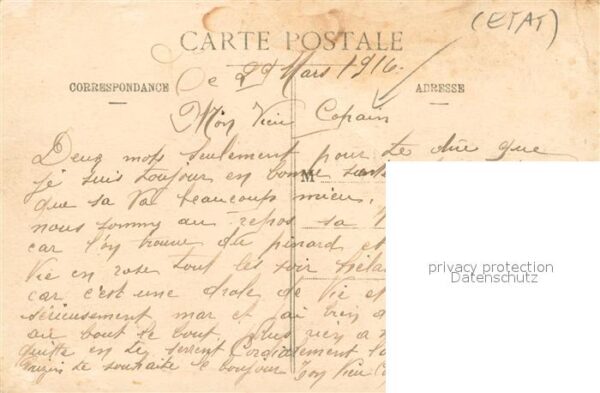 (ETAT)
CARTE POSTALE
Ce 29 Mars 1916.
CORRESPONDANCE ADRESSE
Mon Vieu Copain
Deux mots seulement pour te dire que
je suis toujour en bonne
M
que sa va beaucoups mieu,
nous somme au repos sa
car l'on trouve du pinard et
vie en rose tout les soir
car c'est une drole de vie et
sérieusement mar et j'ai bien
au bout le bout plus rien a
quitte en te serrent Cordialement
te souhaite le bonjour ton Vieu
privacy protection
Datenschutz